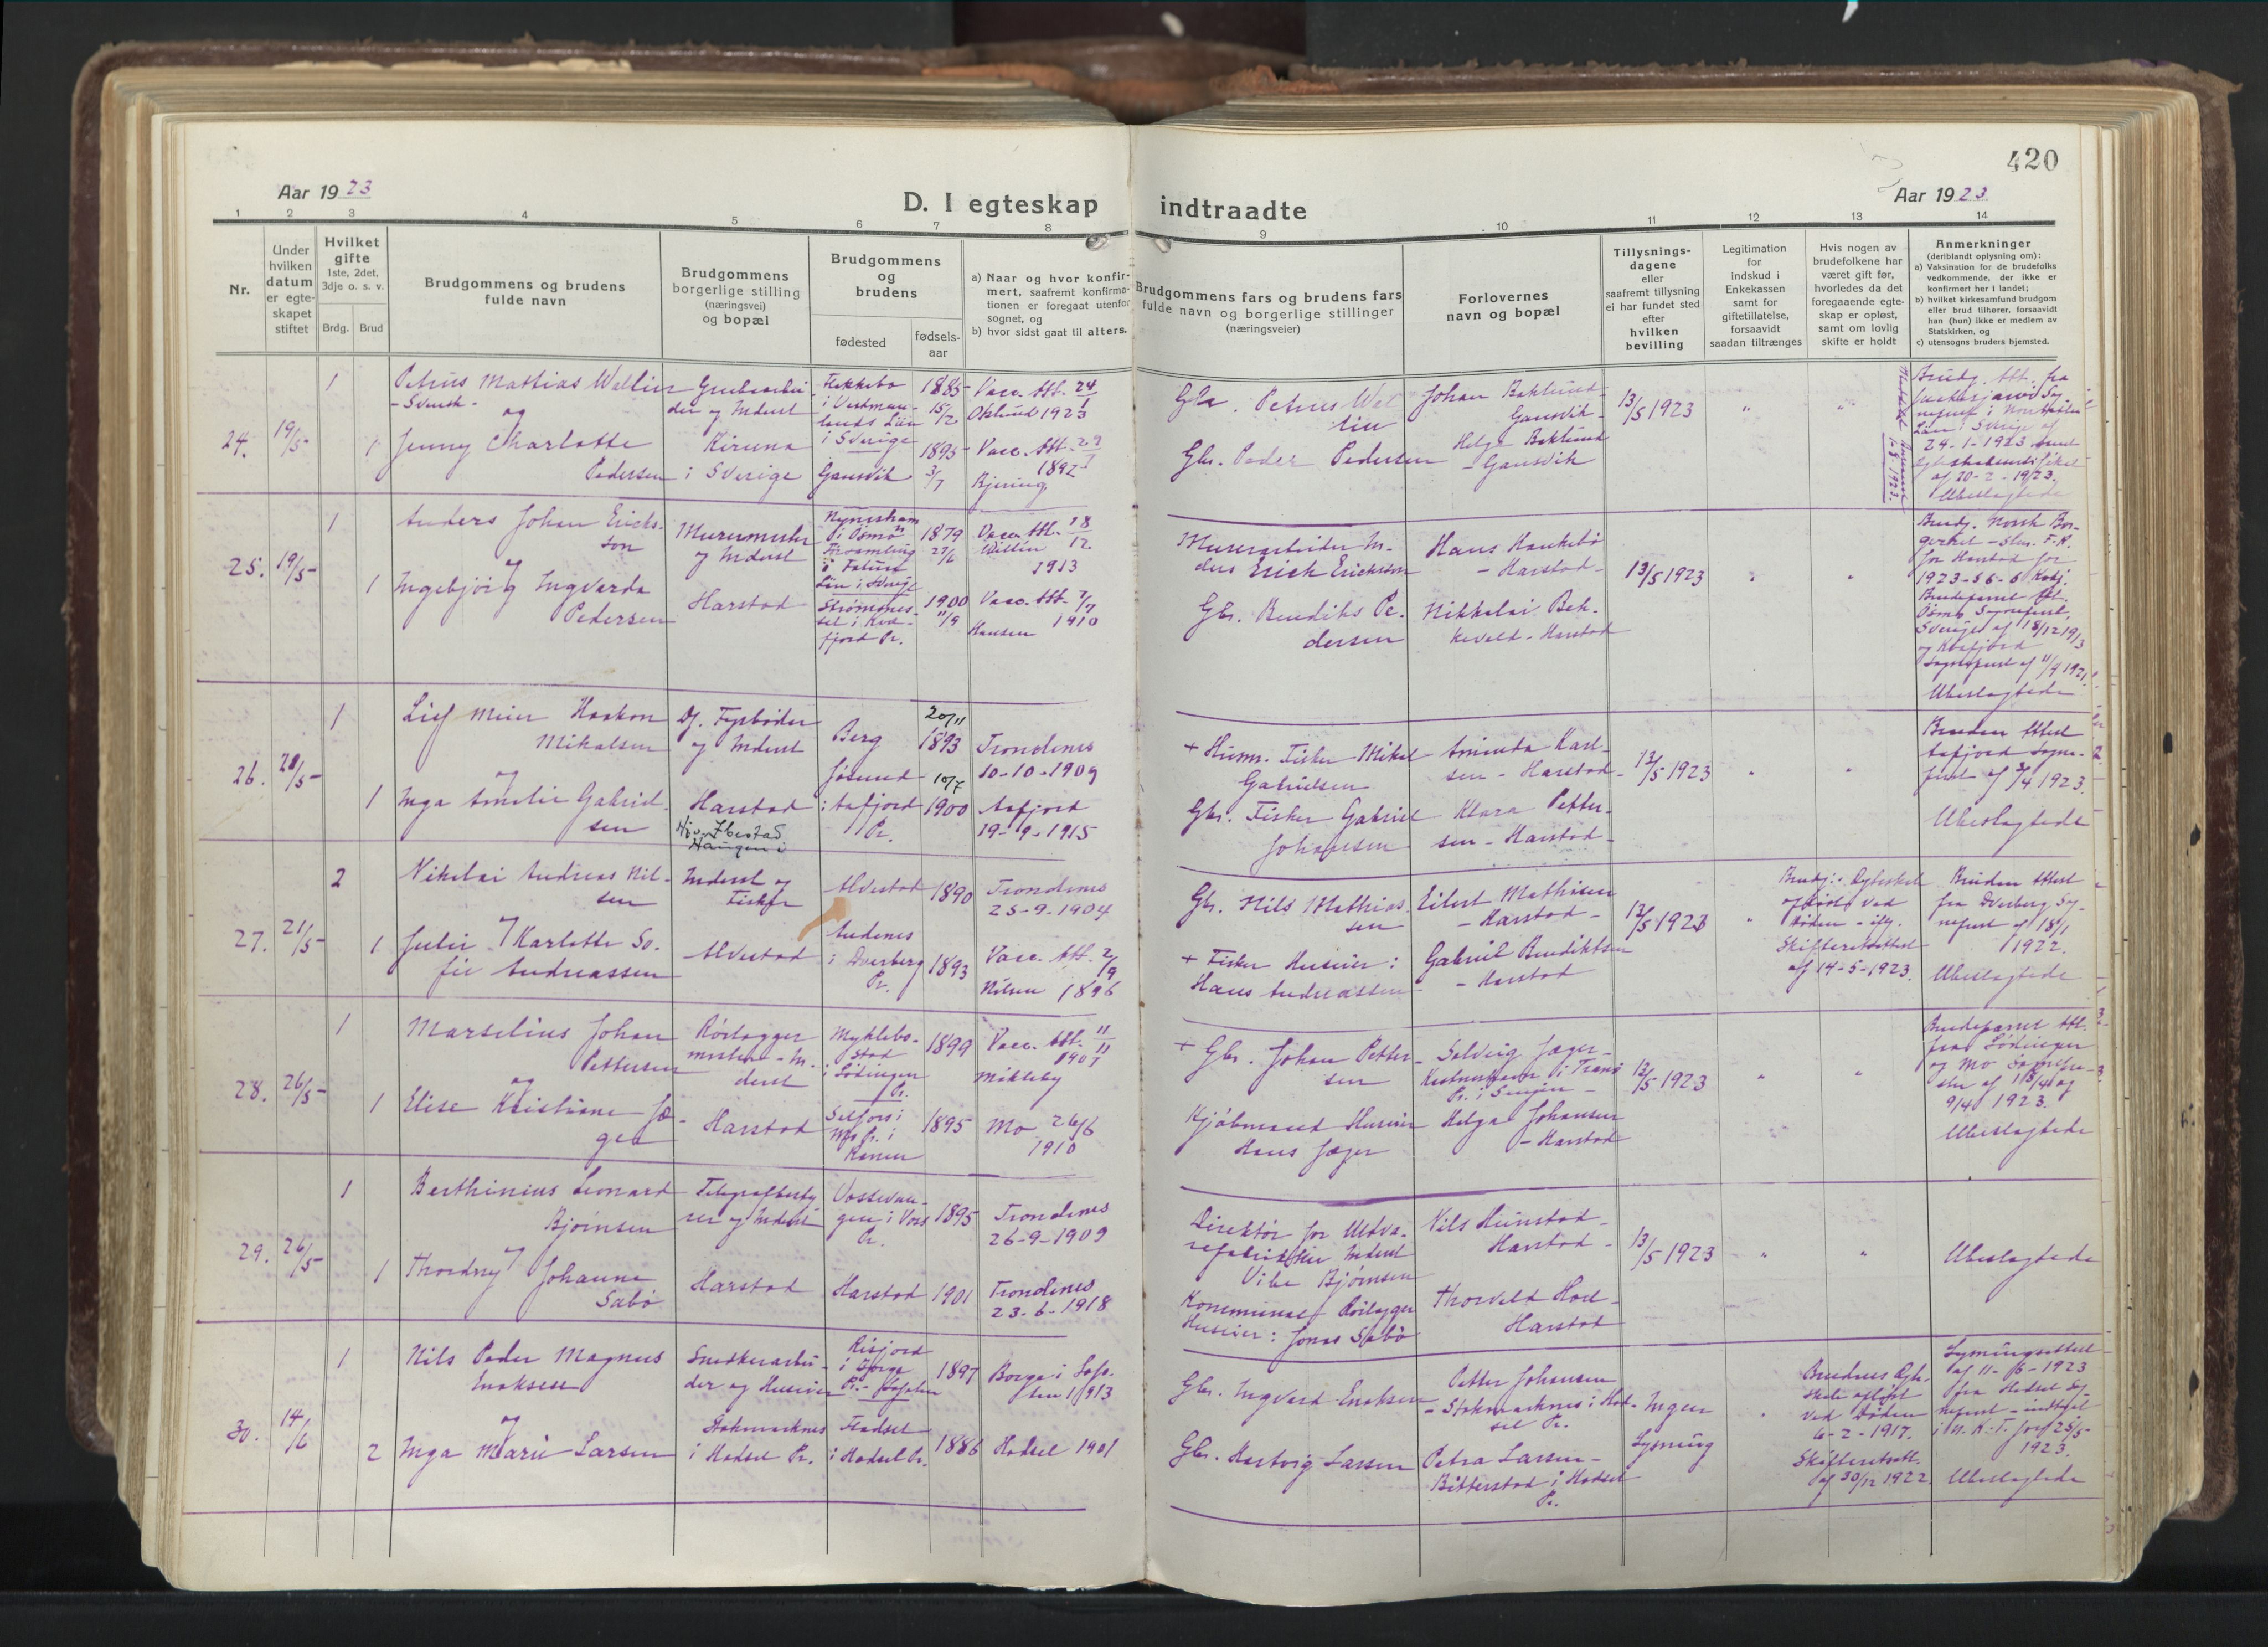 420
Aar 1923
D. I egteskap
indtraadte
Aar 1923
1
2
3
4
5
6
7
8
9
10
11
12
13
14
Nr.
Under
hvilken
datum
er egte-
skapet
stiftet
Hvilket
gifte
1ste, 2det,
3dje o. s. v.
Brdg.
Brud
Brudgommens og brudens
fulde navn
Brudgommens
borgerlige stilling
(næringsvei)
og bopæl
Brudgommens
og
brudens
fødested
fødsels-
aar
a) Naar og hvor konfir-
mert, saafremt konfirma-
tionen er foregaat utenfor
sognet, og
b) hvor sidst gaat til alters.
Brudgommens fars og brudens fars
fulde navn og borgerlige stillinger
(næringsveier)
Forlovernes
navn og bopæl
Tillysnings-
dagene
eller
saafremt tillysning
ei har fundet sted
efter
hvilken
bevilling
Legitimation
for
indskud i
Enkekassen
samt for
giftetillatelse,
forsaavidt
saadan tiltrænges
Hvis nogen av
brudefolkene har
været gift før,
hvorledes da det
foregaaende egte-
skap er opløst,
samt om lovlig
skifte er holdt
Anmerkninger
(deriblandt oplysning om):
a) Vaksination for de brudefolks
vedkommende, der ikke er
konfirmert her i landet;
b) hvilket kirkesamfund brudgom
eller brud tilhører, forsaavidt
han (hun) ikke er medlem av
Statskirken, og
c) utensogns bruders hjemsted.
24.
19/5
1
Petrus Mattias Wallin
- Svensk -
og
1
Jenny Charlotte
Pedersen
Grubearbei-
der og Inderst
Kiruna
i Sverige
i Vestman-
lands Län
i Sverige
1885
15/2
Gansvik
1895
3/7
Vacc. Att. 24/1
1923
Vacc. Att. 29/7
1892
Petrus Wal
lin
Gbr. Peder Pedersen
Johan Baklund
Gansvik
Helge Baklund
- Gansvik
13/5 1923
"
"
Brudg. Att. fra
24-1-1923 samt
af 20-2-1923.
Ubeslægtede
25.
19/5
1
Anders Johan Ericks-
son
og
1
Ingebjørg Ingvarda
Pedersen
Murermester
og Inderst
Harstad
Nyneshamn
i Ösmo
1879
27/6
Strømsnes-
set i Kvæ-
fjord Pr.
1900
11/9
Vacc. Att. 18/12
1913
Vacc. Att. 7/7
1910
Hansen
Murerarbeider An-
ders Erick Ericksson
Gbr. Bendiks Pe-
dersen
Hans Haukebø
- Harstad -
Nikkolai Bek-
kevold - Harstad
13/5 1923
"
"
Brudg. Norsk Bor-
for Harstad for
1923
Sverige af 18/12 1913
og Kvæfjord
Sognepræst af 11/4 1921.
Ubeslægtede
26.
21/5
1
Leif Meier Haakon
Mikalsen
og
1
Inga Amalie Gabriel-
sen
Df. Fyrbøder
og Inderst
Harstad
Berg
20/11
1893
Jøssund
i Aafjord
Pr.
10/7
1900
Trondenes
10-10-1909
Aafjord
19-9-1915
+ Husm. Fisker Mikal
Gabrielsen
Gbr. Fisker Gabriel
Johansen
Aminda Karl-
sen - Harstad -
Klara Petter-
sen - Harstad -
13/5 1923
"
"
Bruden Attest
Aafjord Sogne-
præst af 3/4 1923.
Ubeslægtede
27.
21/5
2
Nikolai Andreas Nil-
sen
og
1
Julie Karlotte So-
fie Andreassen
Ibestad
Haugen i
Inderst og
Fisker
Alvestad
Alvestad
1890
Andenes
i Dverberg
Pr.
1893
Trondenes
25-9-1904
Vacc. Att. 2/9
Nilsen 1896
Gbr. Nils Mathias-
sen
+ Fisker Huseier:
Hans Andreassen
Eilert Mathisen
- Harstad -
Gabriel Bendiktsen
- Harstad
13/5 1923
"
Brudg.: Egteskab
opløst ved
Døden - iflg.
Skifterettsattest
af 14-5-1923.
Bruden Attest
fra Dverberg Sog-
nepræst af 18/1
1922.
Ubeslægtede
28.
26/5
1
Marselius Johan
Pettersen
og
1
Elise Kristiane Jæ-
ger
Rørlægger
mester - In-
derst
Harstad
Myklebo-
stad
i Lødingen
Pr.
1899
Selfors i
Mo Pr. i
Ranen
1895
Vacc. Att. 11/11
1907
Mikleby
Mo 26/6
1910
+ Gbr. Johan Petter-
sen
Kjøbmand Huseier
Hans Jæger
Solveig Jæger -
Helga Johansen
- Harstad
13/5 1923
"
"
fra Lødingen
og Mo Sognepræ-
ster af 18/4 og
9/4 1923.
Ubeslægtede
29.
26/5
1
Berthinius Leonard
Bjørnsen
og
1
Thordny Johanne
Sabø
Telegrafbesty
rer og Inderst
Harstad
Vossevan-
gen i Voss
Pr.
1895
Harstad
1901
Trondenes
26-9-1909
Trondenes
23-6-1918
Direktør for Uldva-
refabrikken Inderst
Vibe Bjørnsen
Kommunal Rørlægger
Huseier: Jonas Sabø
Nils Heimstad -
Harstad -
Thorvald Hoel -
Harstad
13/5 1923
"
"
Ubeslægtede
30.
14/6
1
Nils Peder Magnus
Enoksen
og
2
Inga Marie Larsen
Snedkerarbei-
der og Huseier
Stokmarknes
i Hadsel Pr.
Risfjord
i Borge
Pr. - Lofoten
1897
Hadsel
i Hadsel Pr.
1886
Borge i Lofo-
ten 1913
Hadsel 1901
Gbr. Ingvard Enoksen
Gbr. Hartvig Larsen
Petter Johansen
- Stokmarknes i Had-
sel Pr.
Petra Larsen -
Bitterstad i Hadsel
Pr.
Ingen
Lysning
"
Brudens Egte-
skab opløst
ved Døden
6-2-1917.
Skifterettsatt.
af 30/12 1922.
Lysningsattest
af 11-6-1923
fra Hadsel Sog-
nepræst - indtaget
i N. K. T. for 25/5-
1923.
Ubeslægtede